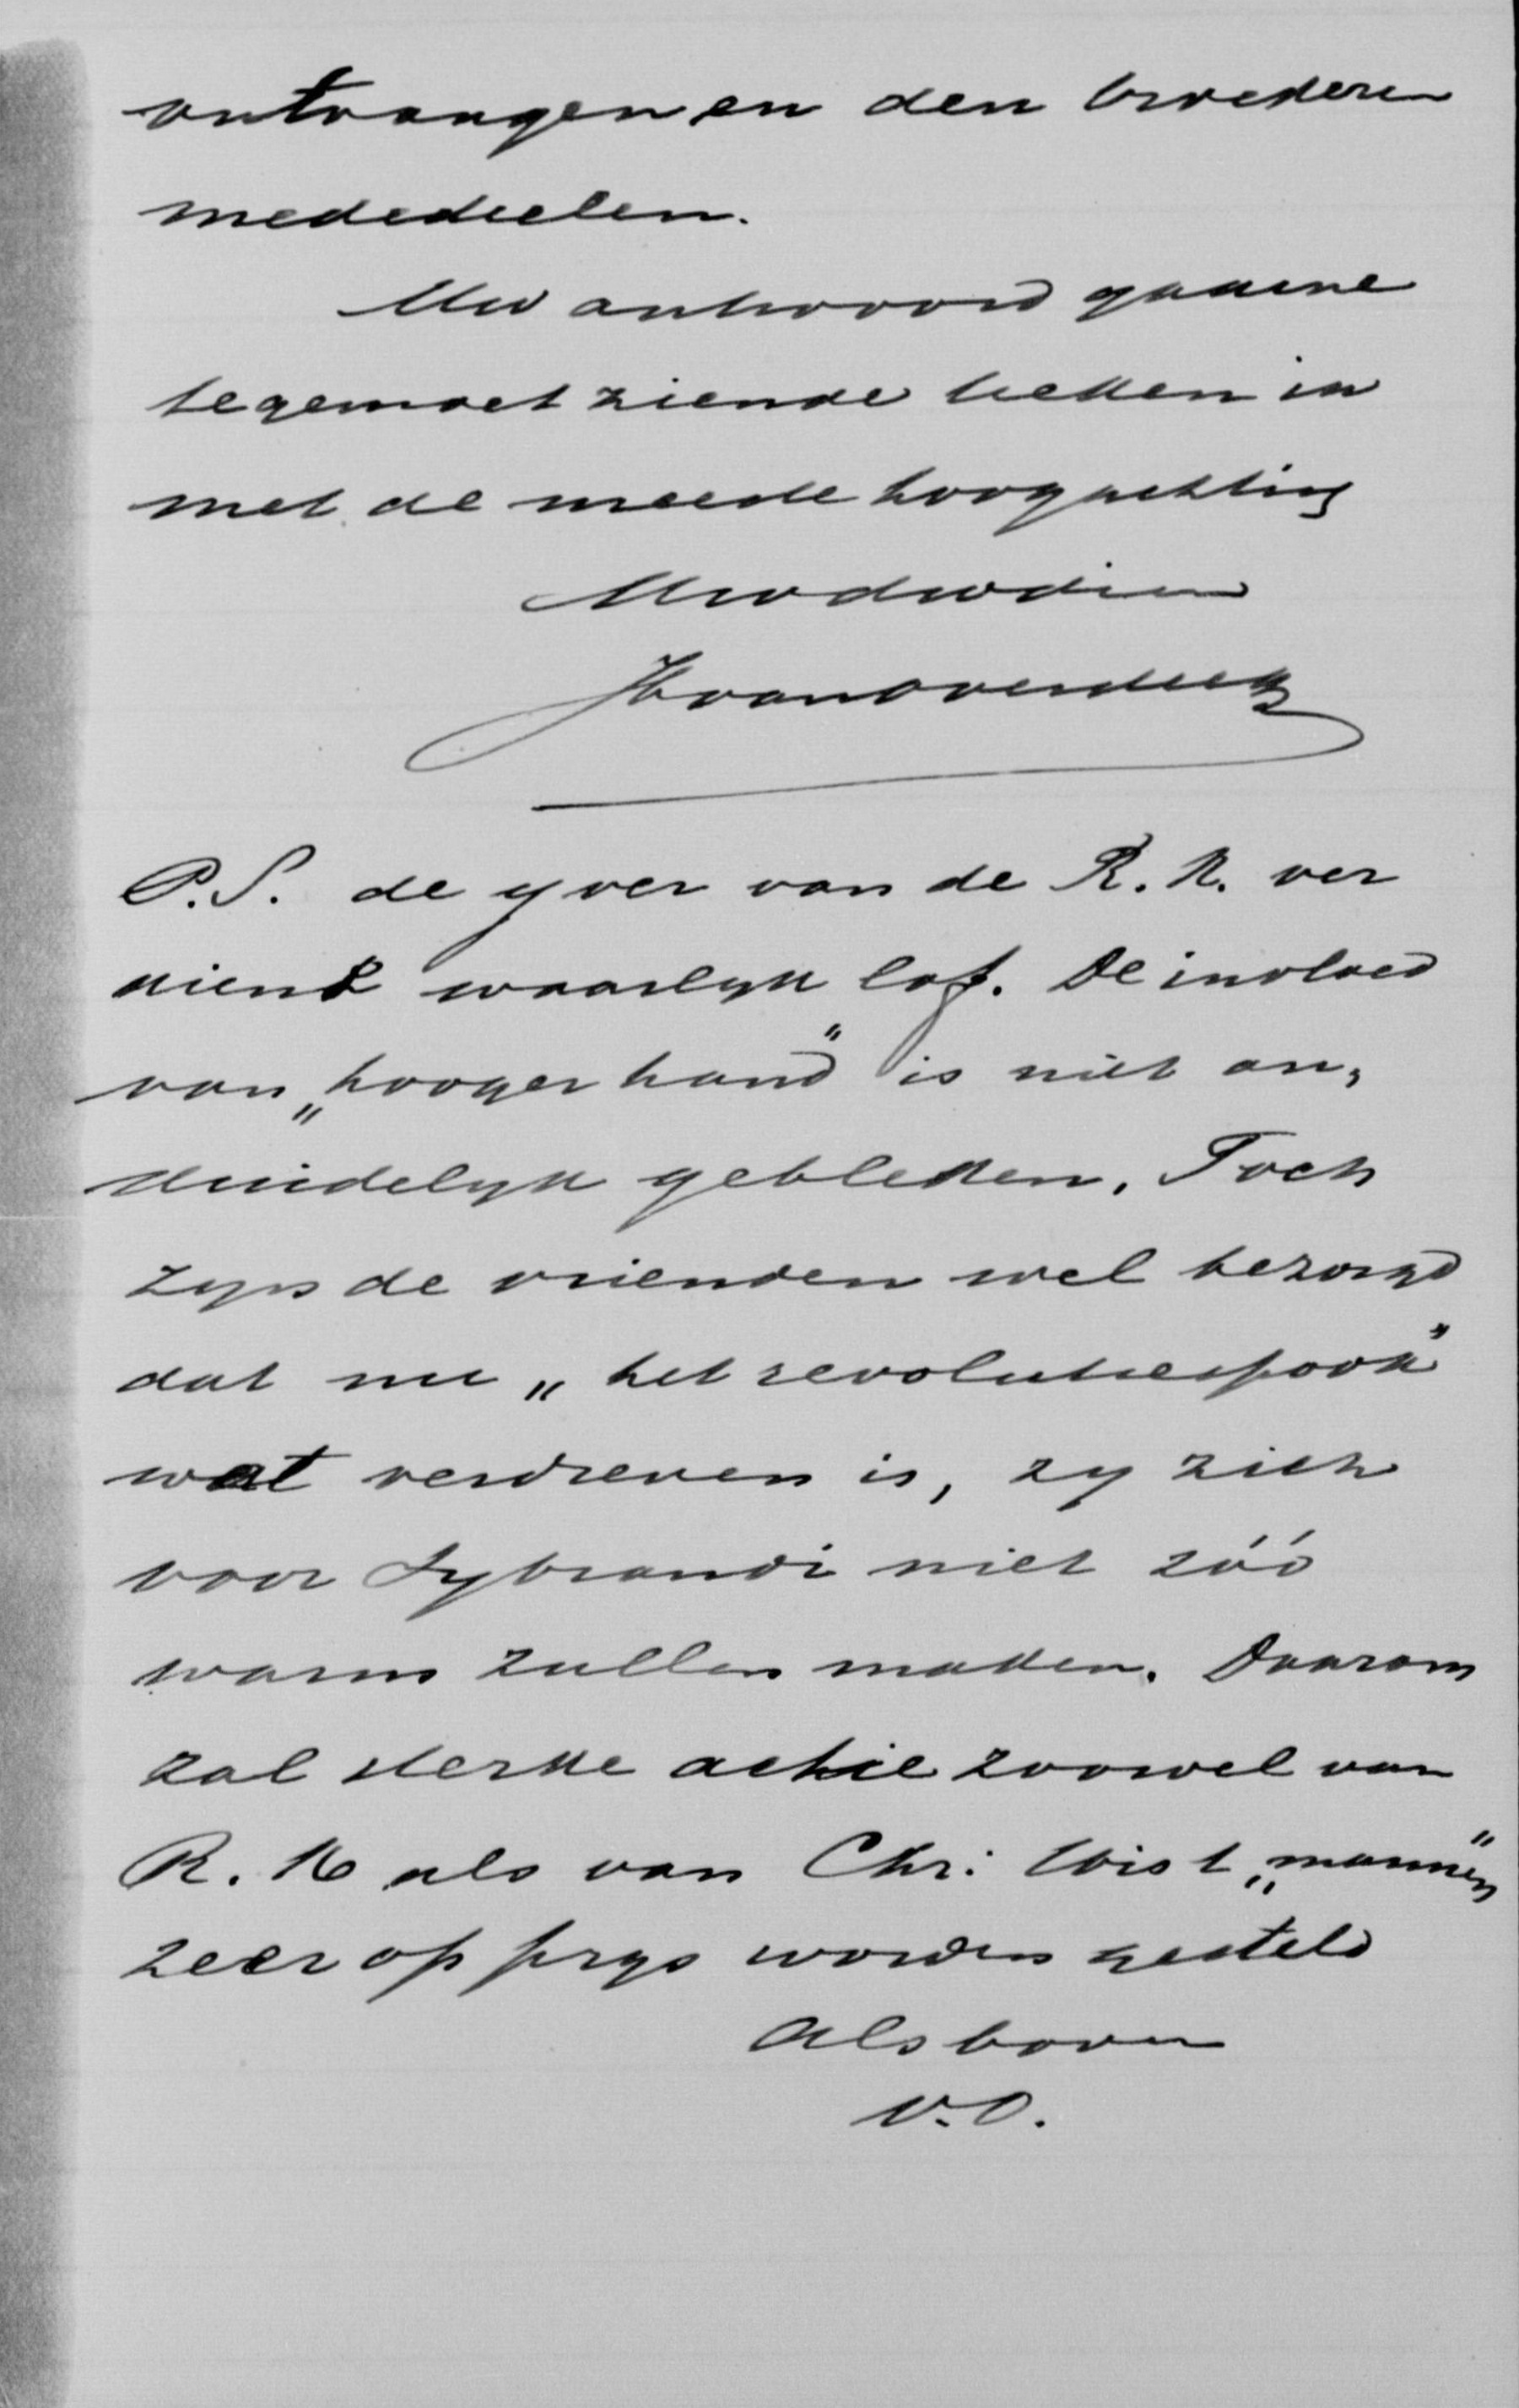 ontvangen en den broederen
mededeelen.
Uw antwoord gaarne
tegemoet ziende teeken ik
met de meeste hoogachting
Uw dw dien
van Overdeek
P.S. de yver van de R.K. ver
dient waarlyk lof. De invloed
van „hooger hand" is niet on„
duidelyk gebleken. Toch
zyn de vrienden wel bezorgd
dat nu „het revolutiespook"
wat verdreven is, zy zich
voor Sybrandi niet zóó
warm zullen maken. Daarom
zal sterke actie zoowel van
R.K als van Chr: Hist „mannen"
zeer op prys worden gesteld
Als boven
v.O.